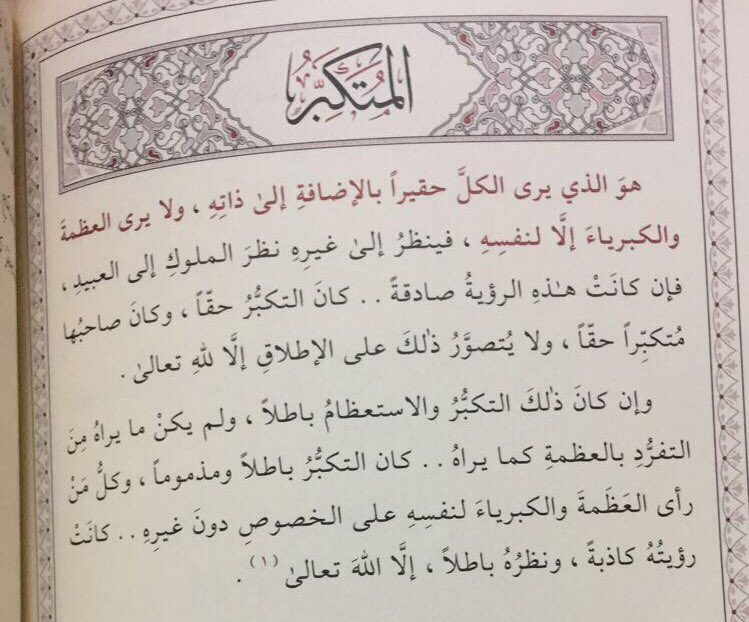 المُتَكَبِّرُ
هوَ الذي يرى الكلَّ حقيراً بالإضافةِ إلىٰ ذاتِهِ ، ولا يرى العظمةَ
والكبرياءَ إلَّا لنفسِهِ ، فينظرُ إلىٰ غيرِهِ نظرَ الملوكِ إلى العبيدِ ،
فإن كانَتْ هـٰذهِ الرؤيةُ صادقةً . . كانَ التكبُّرُ حقّاً ، وكانَ صاحبُها
مُتكبِّراً حقّاً ، ولا يُتصوَّرُ ذٰلكَ على الإطلاقِ إلَّا للهِ تعالىٰ .
وإن كانَ ذٰلكَ التكبُّرُ والاستعظامُ باطلاً ، ولم يكنْ ما يراهُ مِنَ
التفرُّدِ بالعظمةِ كما يراهُ . . كان التكبُّرُ باطلاً ومذموماً ، وكلُّ مَنْ
رأى العَظَمةَ والكبرياءَ لنفسِهِ على الخصوصِ دونَ غيرِهِ . . كانَتْ
رؤيتُهُ كاذبةً ، ونظرُهُ باطلاً ، إلَّا اللهَ تعالىٰ (١) .